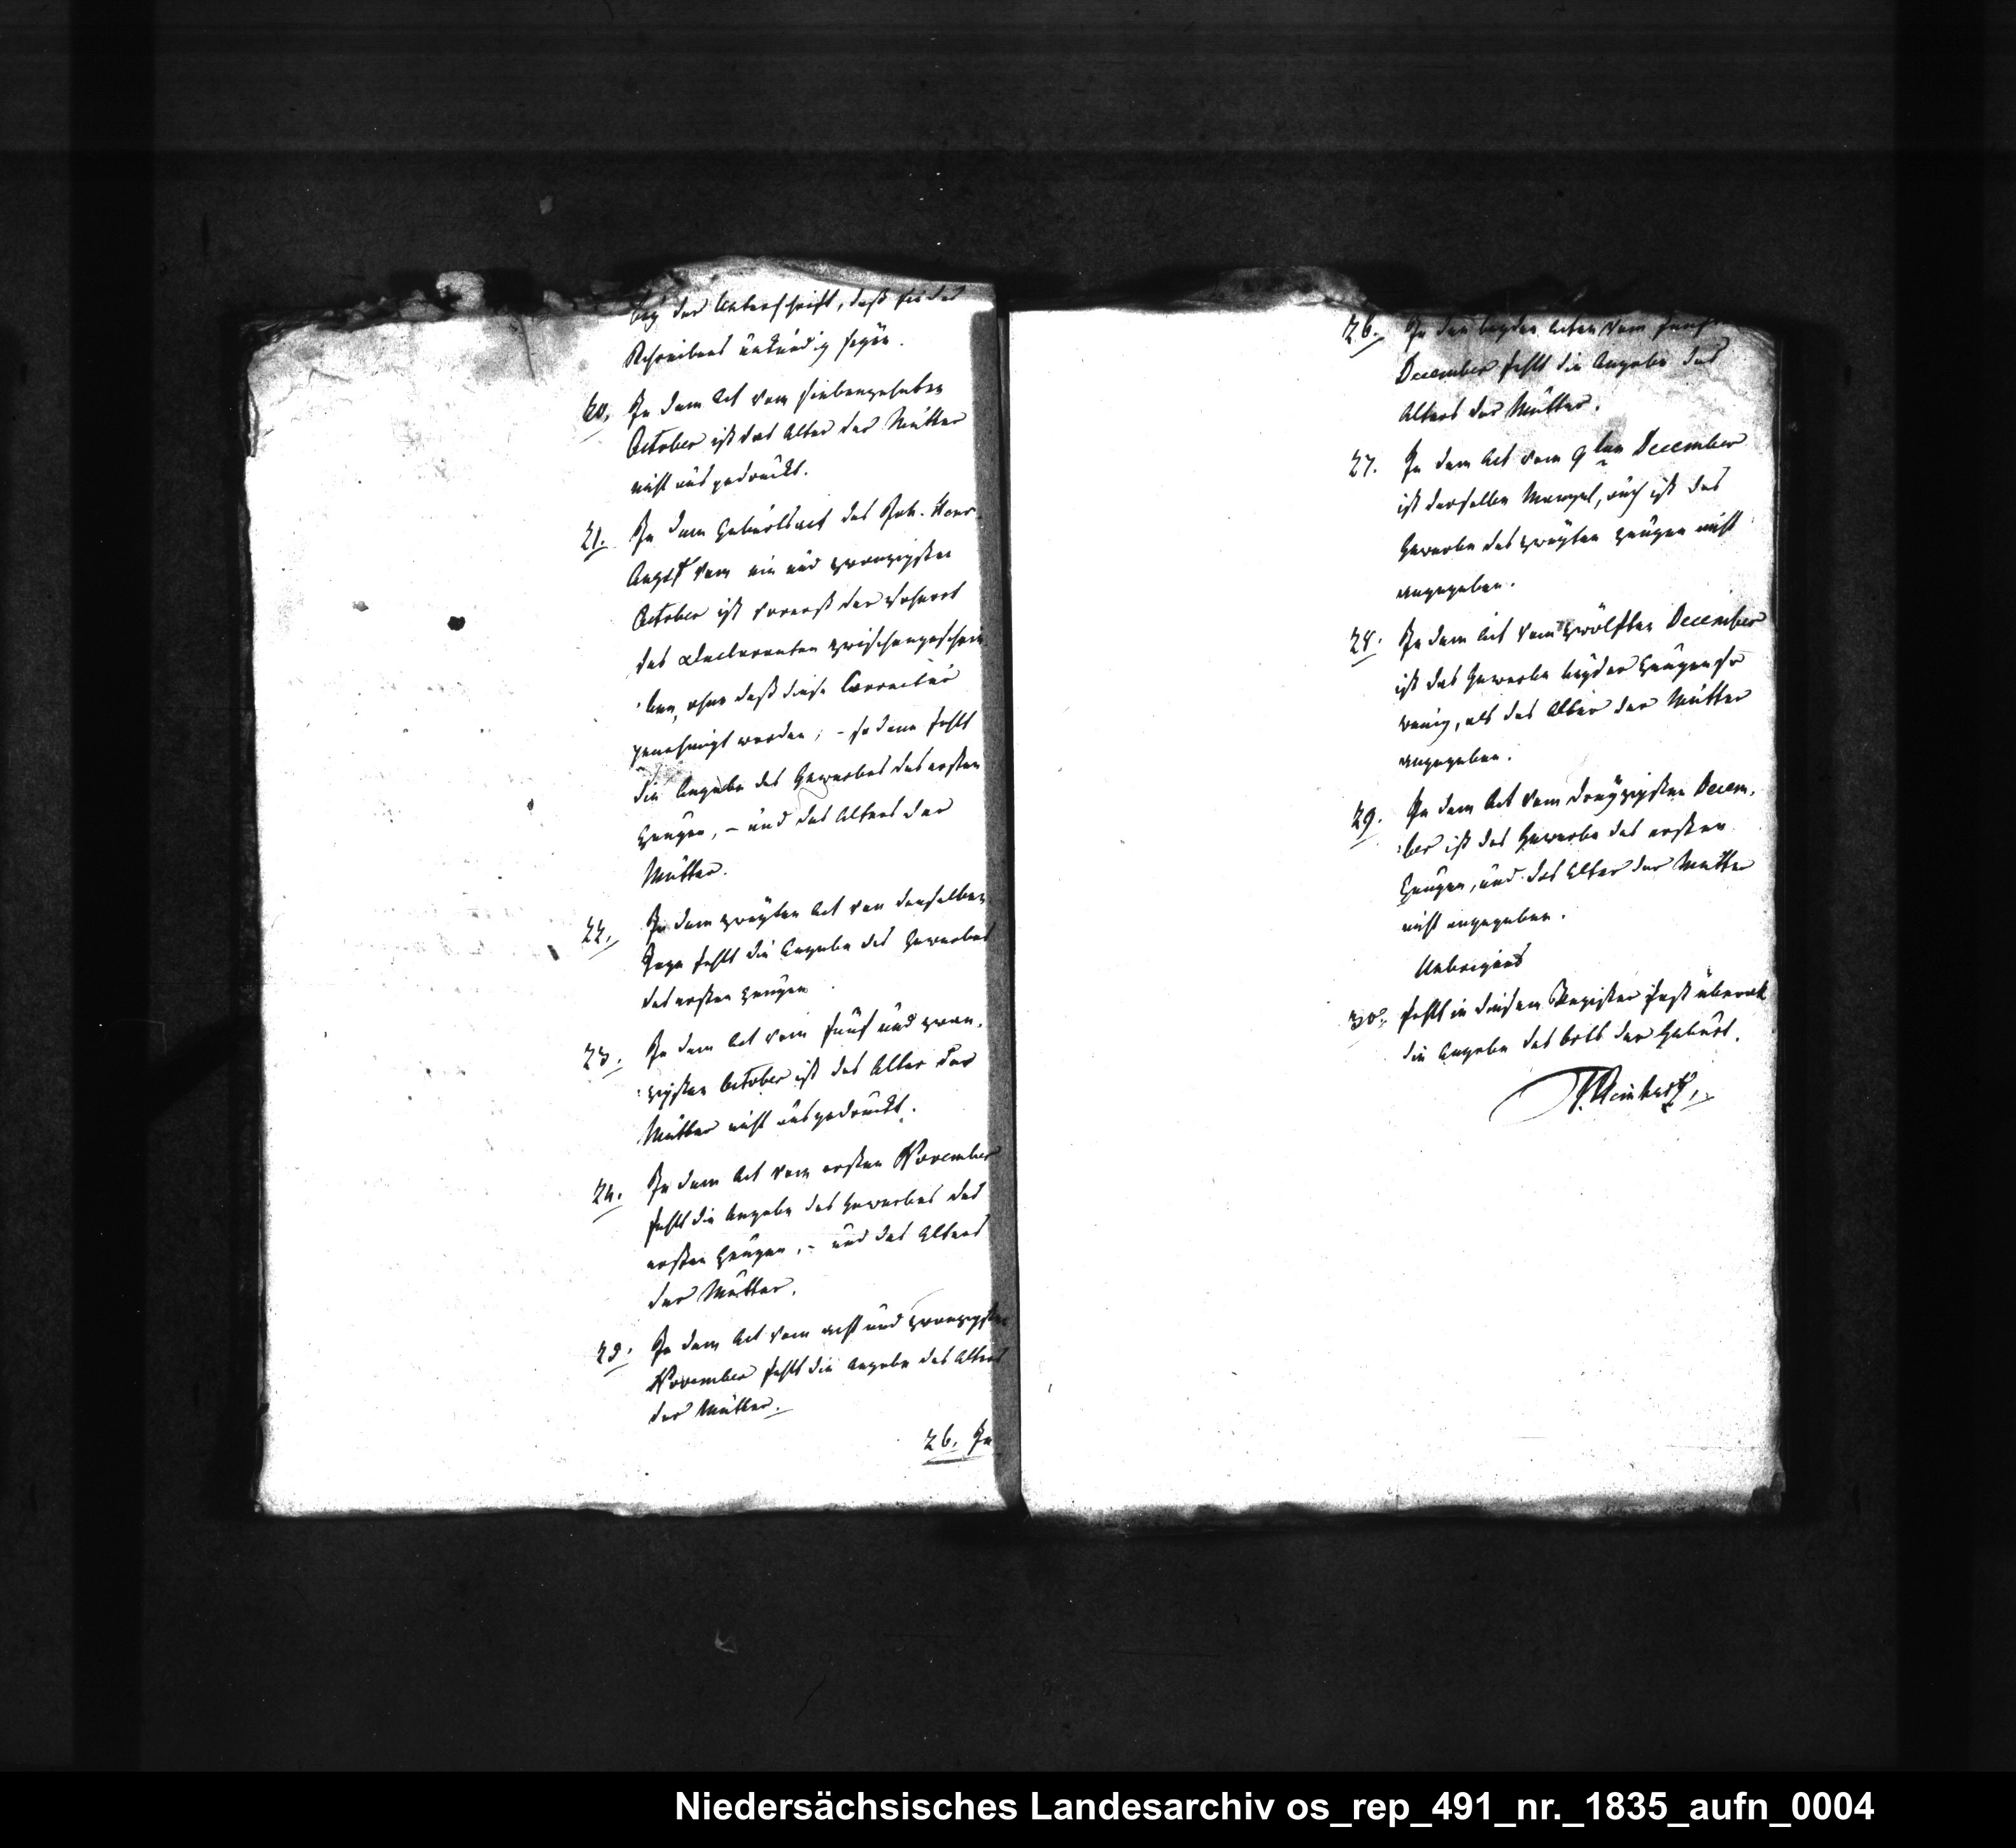 bey der Unterschrift, daß sie des
Schreibens unkundig seyen.
20. In dem Act vom siebenzehnten
October ist das Alter der Mutter
nicht ausgedruckt.
21. In dem Geburtsact des Joh. Herr.
Angst vom ein und zwanzigsten
October ist vorerst der Wohnort
des Declaranten zwischengeschrie-
ben, ohne daß diese Correctur
genehmigt worden; - so dann fehlt
die Angabe des Gewerbes des ersten
Zeugen, - und des Alters der
Mutter.
22. In dem zweyten Act von demselben
Tage fehlt die Angabe des Gewerbes
des ersten Zeugen.
23. In dem Act vom fünf und zwan-
zigsten October ist das Alter der
Mutter nicht ausgedruckt.
24. In dem Act vom ersten November
fehlt die Angabe des Gewerbes des
ersten Zeugen, - und des Alters
der Mutter.
25. In dem Act vom acht und zwanzigsten
November fehlt die Angabe des Alters
der Mutter.
26. In
26. In den beyden Acten vom
December fehlt die Angabe des
Alters der Mutter.
27. In dem Act vom 9ten December
ist derselbe Mangel, auch ist das
Gewerbe des zweyten Zeugen nicht
angegeben.
28. In dem Act vom zwölften December
ist das Gewerbe beyder Zeugen so
wenig, als das Alter der Mutter
angegeben.
29. In dem Act vom dreyzigsten Decem-
ber ist das Gewerbe des ersten
Zeugen, und das Alter der Mutter
nicht angegeben.
Uebrigens
30. fehlt in diesem Register fast überall
die Angabe des Orts der Geburt.
Niedersächsisches Landesarchiv os_rep_491_nr._1835_aufn_0004